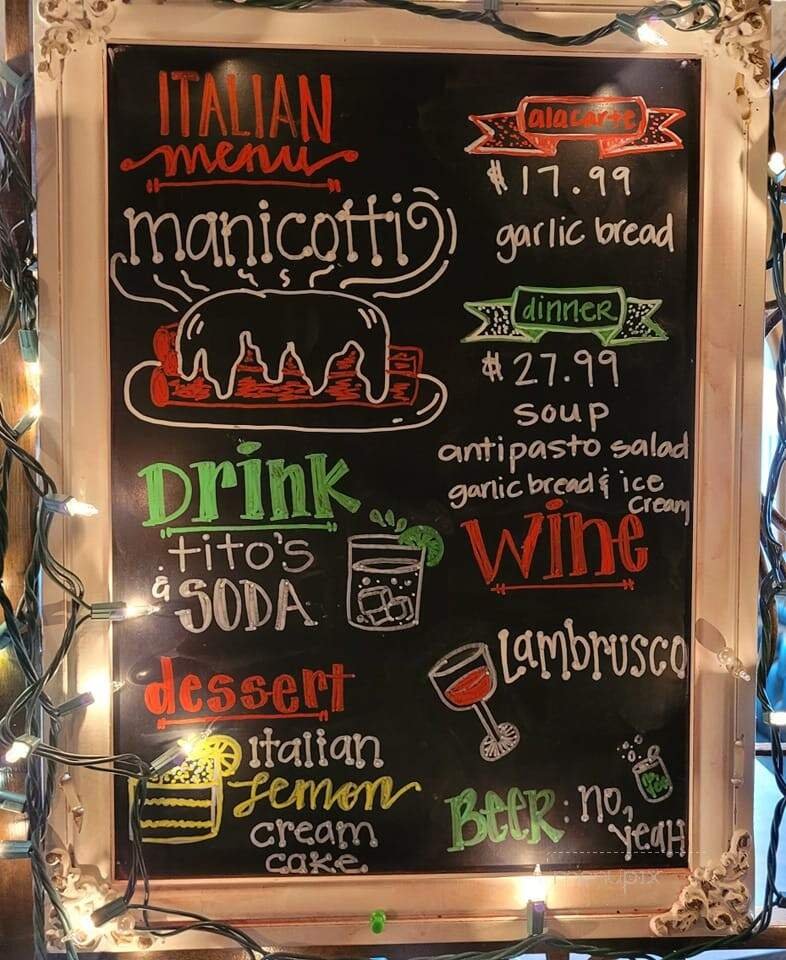 ITALIAN
menu
manicotti
alacarte
$17.99
garlic bread
dinner
$27.99
soup
antipasto salad
garlic bread & ice
cream
Drink
tito's
& SODA
Wine
Lambrusco
dessert
italian
Lemon
cream
cake
BEER: no,
yeaH